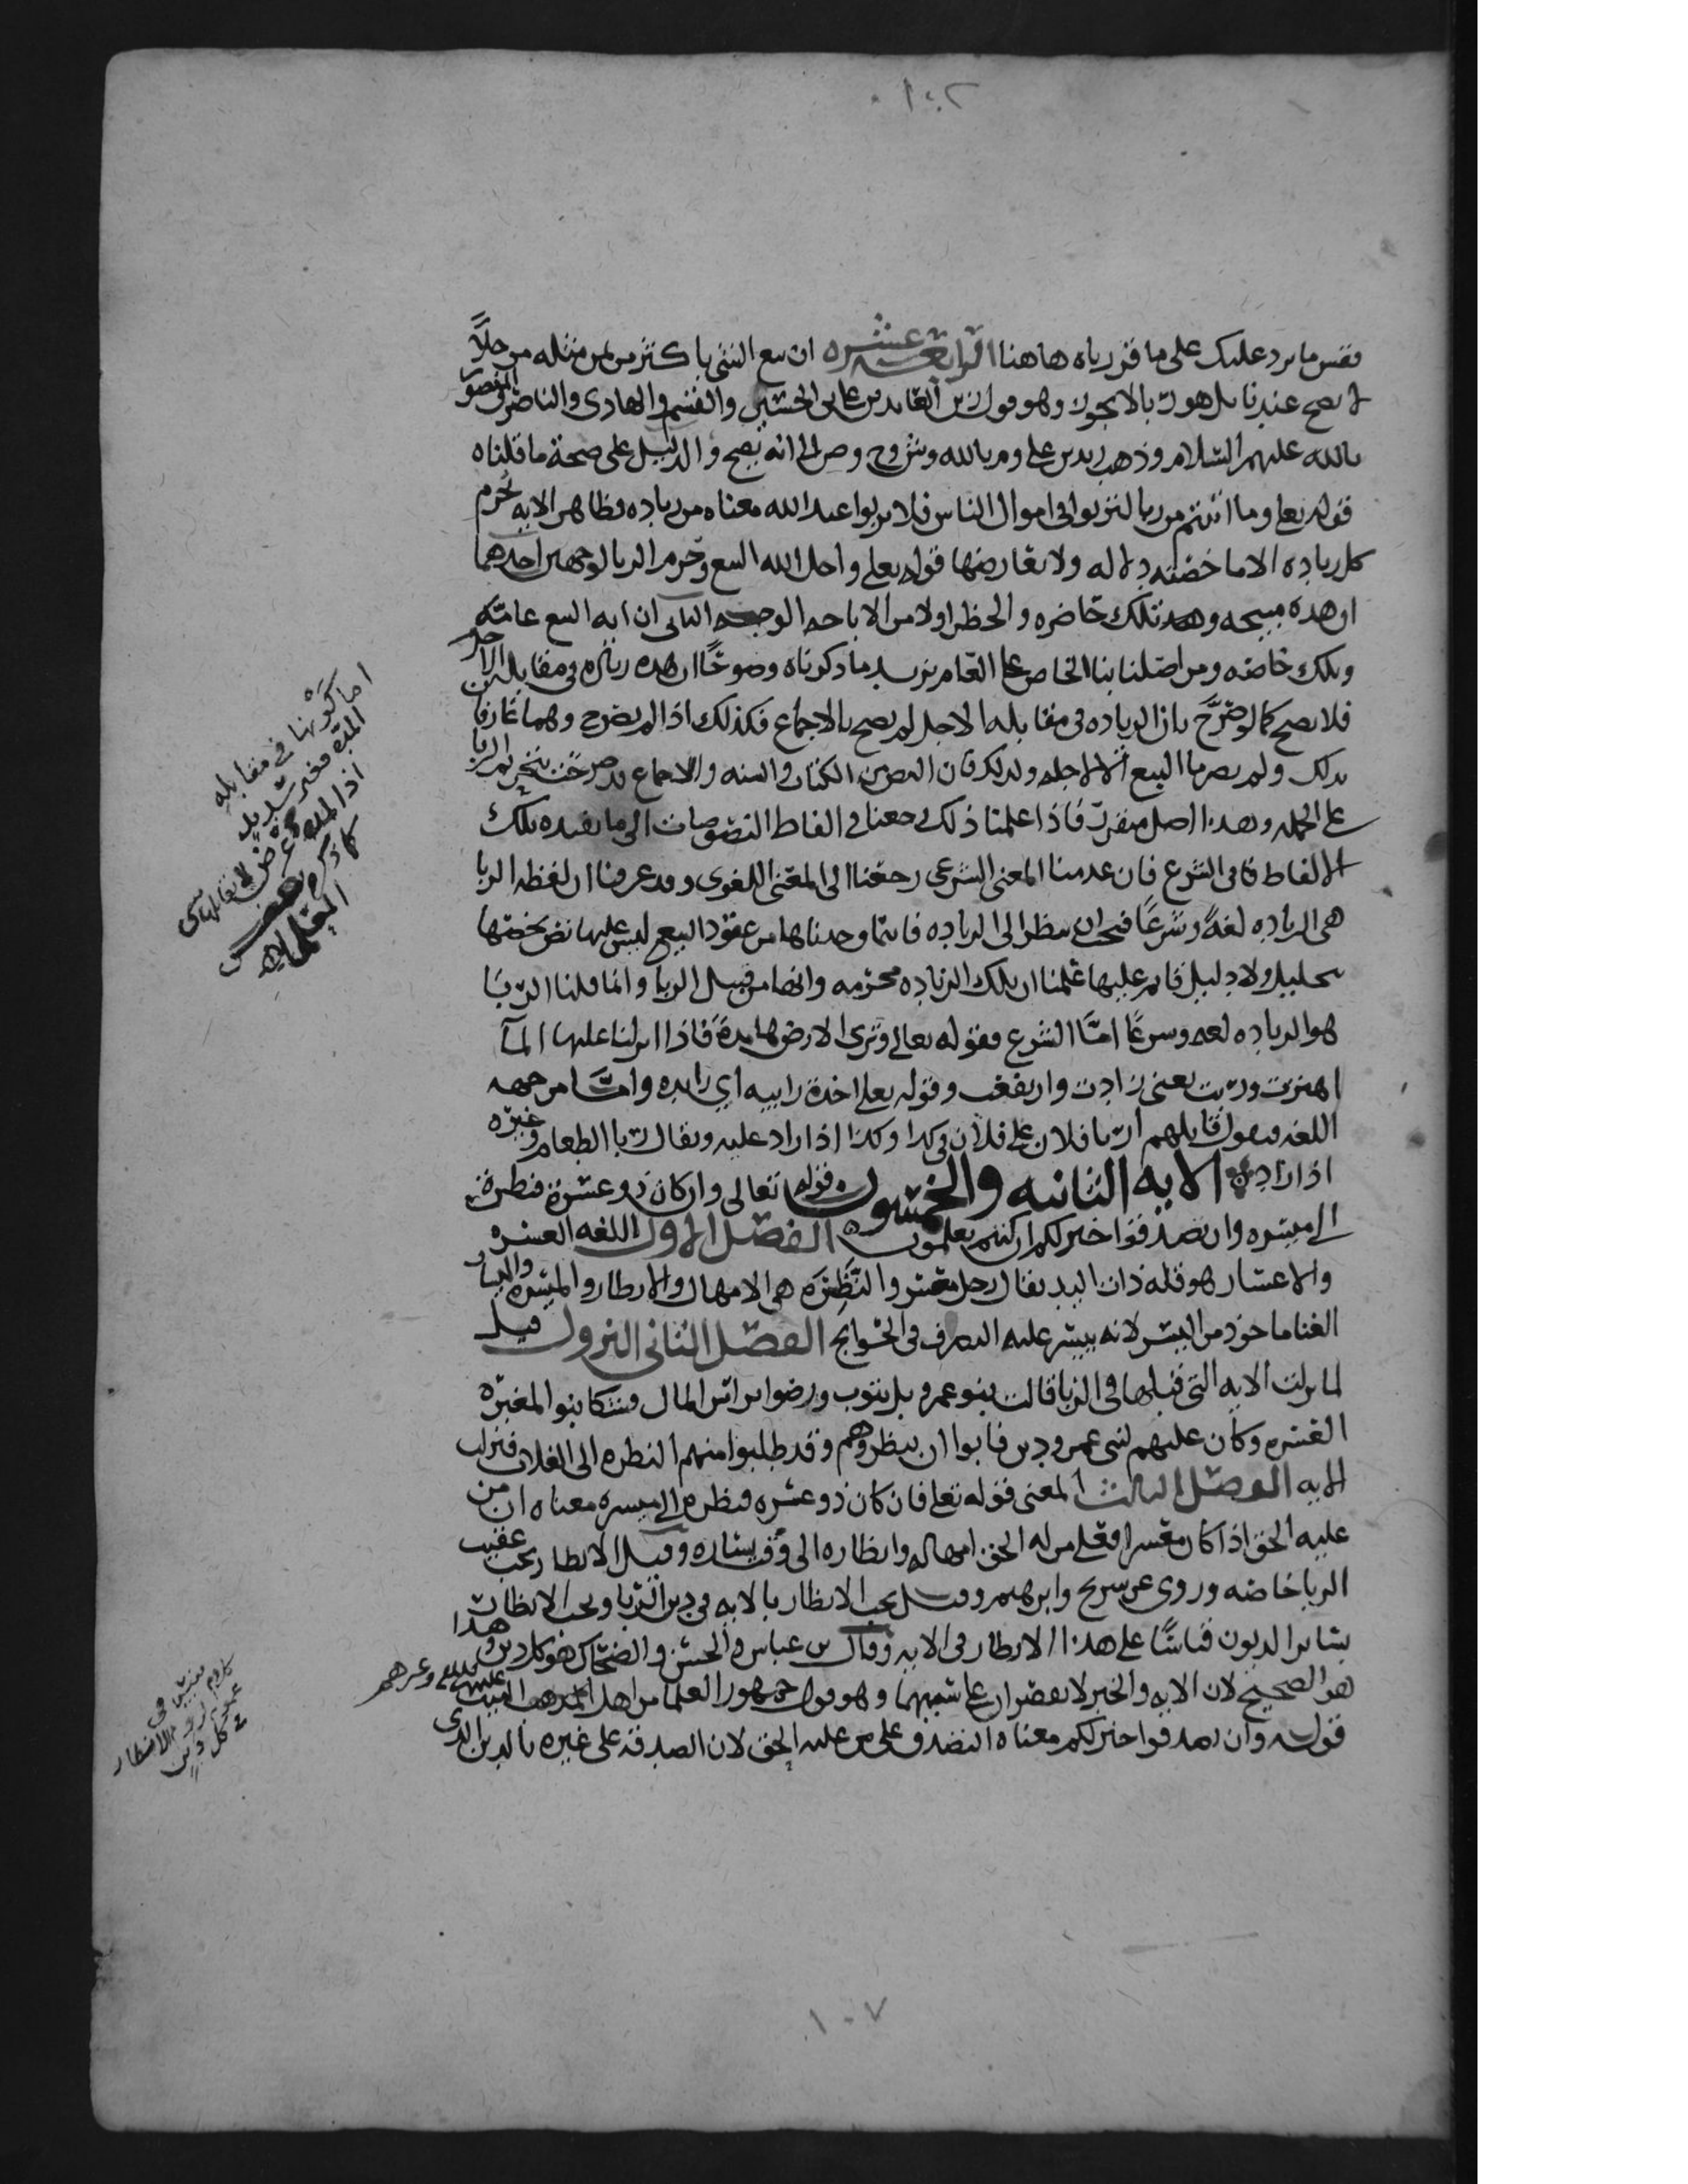 ١٠٢
فقس ما يرد عليك على ما قررناه هاهنا الرابعة عشره ان بيع الشي باكثر من ثمن مثله موجلاً
لا يصح عندنا بل هو ربا لا يجوز وهو قول زين العابدين علي بن الحسين والقسم والهادي والناصر والمنصور
بالله عليهم السلام وذهب زيد بن علي وم بالله وش وح وص الى انه يصح والدليل على صحة ما قلناه
قوله تعلى وما اتيتم من ربا لتربوا في اموال الناس فلا يربوا عند الله معناه من زياده وظاهر الايه تحرم
كل زياده الا ما خصته دلاله ولا يعارضها قوله تعلى واحل الله البيع وحرم الربا لوجهين احدهما
ان هذه مبيحه وتلك حاضره والحظر اولا من الاباحه الوجه الثاني ان ايه البيع عامه
وتلك خاصه ومن اصلنا بنا الخاص على العام يزيد ما ذكرناه وضوحًا ان هذه زيادة في مقابله الاجل
فلا يصح كما لو صرَّح بان الزياده في مقابله الاجل لم يصح بالاجماع فكذلك اذا لم يصرح وهما عارفان
بذلك ولم يصرما البيع الا لاجله ولذلك فان النص من الكتاب والسنه والاجماع قد صرحت بتحريم الربا
على الجمله وهذا اصل متقرر فاذا علمنا ذلك رجعنا في الفاظ النصوصات الى ما يفيده تلك
الالفاظ في الشرع فان عدمنا المعنى الشرعي رجعنا الى المعنى اللغوى وقد عرفنا ان لفظه الربا
هي الزياده لغةً وشرعًا فيجب ان ينظر الى الزياده فايتما وجدناها من عقود البيع ليس عليها نص يخصها
بتحليل ولا دليل قايم عليها علمنا ان تلك الزياده محرمه وانها من قبيل الربا وانما قلنا الربا
هو الزياده لغه وشرعًا امَّا الشرع فقوله تعالى وترى الارض هامدةً فاذا انزلنا عليها المآ
اهتزت وربت يعني زادت وارتفعت وقوله تعلى اخذة رابيه اي زايده وامَّا من جهه
اللغه فيقول قايلهم اربا فلان على فلان في كدا وكدا اذا زاد عليه ويقال ربا الطعام وغيره
اذا زاد الايه الثانيه والخمسون قوله تعالى وان كان ذو عشرة فنظرة
الى ميسره وان تصدقوا خير لكم ان كنتم تعلمون الفصل الاول اللغه العسره
والاعسار هو قله ذات اليد يقال رجل معسر والنَّظِرَه هي الامهال والانظار والميسره واليسار
الغنا ماخوذ من اليسر لانه ييسر عليه التصرف في الحوايج الفصل الثاني النزول قيل
لما نزلت الايه التي قبلها في الربا قالت بنو عمرو بل نتوب ورضوا براس المال وشكا بنوا المغيره
العسره وكان عليهم لبني عمرو دين فابوا ان ينظروهم وقد طلبوا منهم النظره الى الغلات فنزلت
الايه الفصل الثالث المعنى قوله تعلى فان كان ذو عشره فنظره الى ميسره معناه ان من
عليه الحق اذا كان معسرا فعلى من له الحق امهاله وانظاره الى وقت يساره وقيل الانظار يجب عقيب
الربا خاصه وروى عن سريح وابرهيم وقيل يجب الانظار بالايه في دين الربا ويجب الانظار
بسائر الديون قياسًا على هذا الانظار في الايه وقال بن عباس والحسن والضحاك هو كل دين وهذا
هو الصحيح لان الايه والخبر لا يقصران على سببهما وهو قول جمهور العلما من اهل البيت عليهم السلم وغيرهم
قوله وان تصدقوا خير لكم معناه التصدق على من عليه الحق لان الصدقه على غيره بالدين الذي
اما كونها في مقابله
المدة فغير شديد
اذا المده
كاذكره بعض
العلما
عموم لزوم الانظار
في كل دين
١٠٧